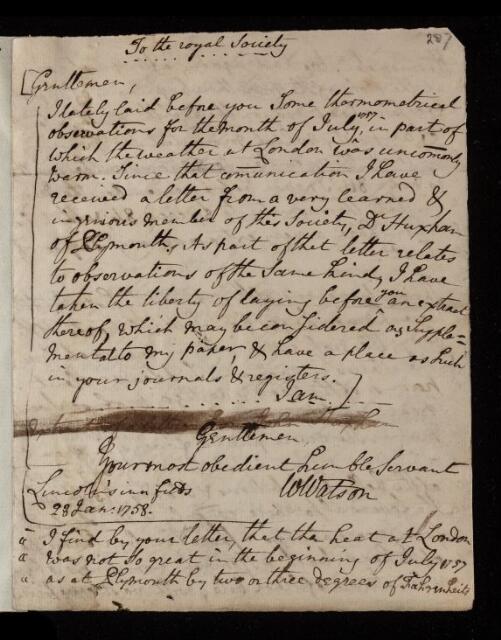 To the royal Society
287
Gentlemen,
I lately laid before you Some thermometrical
observations for the month of July, 1757 in part of
which the weather at London was uncomonly
warm. Since that comunication I have
received a letter from a very learned &
ingenious member of this Society, Dr Huxham
of Plymouth. As part of that letter relates
to observations of the Same kind, I have
taken the liberty of laying before you an extract
thereof, which may be considered as Supple=
mental to my paper, & have a place as Such
in your journals & registers.
I am
Gentlemen
Your most obedient humble Servant
Lincoln's inn fields WWatson
28 Jan: 1758.
" I find by your letter, that the heat at London
" was not So great in the beginning of July 1757
" as at Plymouth by two or three degrees of Fahrenheits